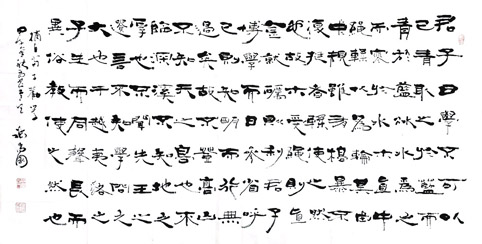 君子曰學不可以
已青取之於藍而
青於藍冰水為之
而寒於水木直中
繩輮以為輪其曲
中規雖有槁暴不
復挺者輮使之然
也故木受繩則直
金就礪則利君子
博學而日參省乎
己則知明而行無
過矣故不登高山
不知天之高也不
臨深溪不知地之
厚也不聞先王之
遺言不知學問之
大也干越夷貉之
子生而同聲長而
異俗教使之然也
摘自荀子勸學